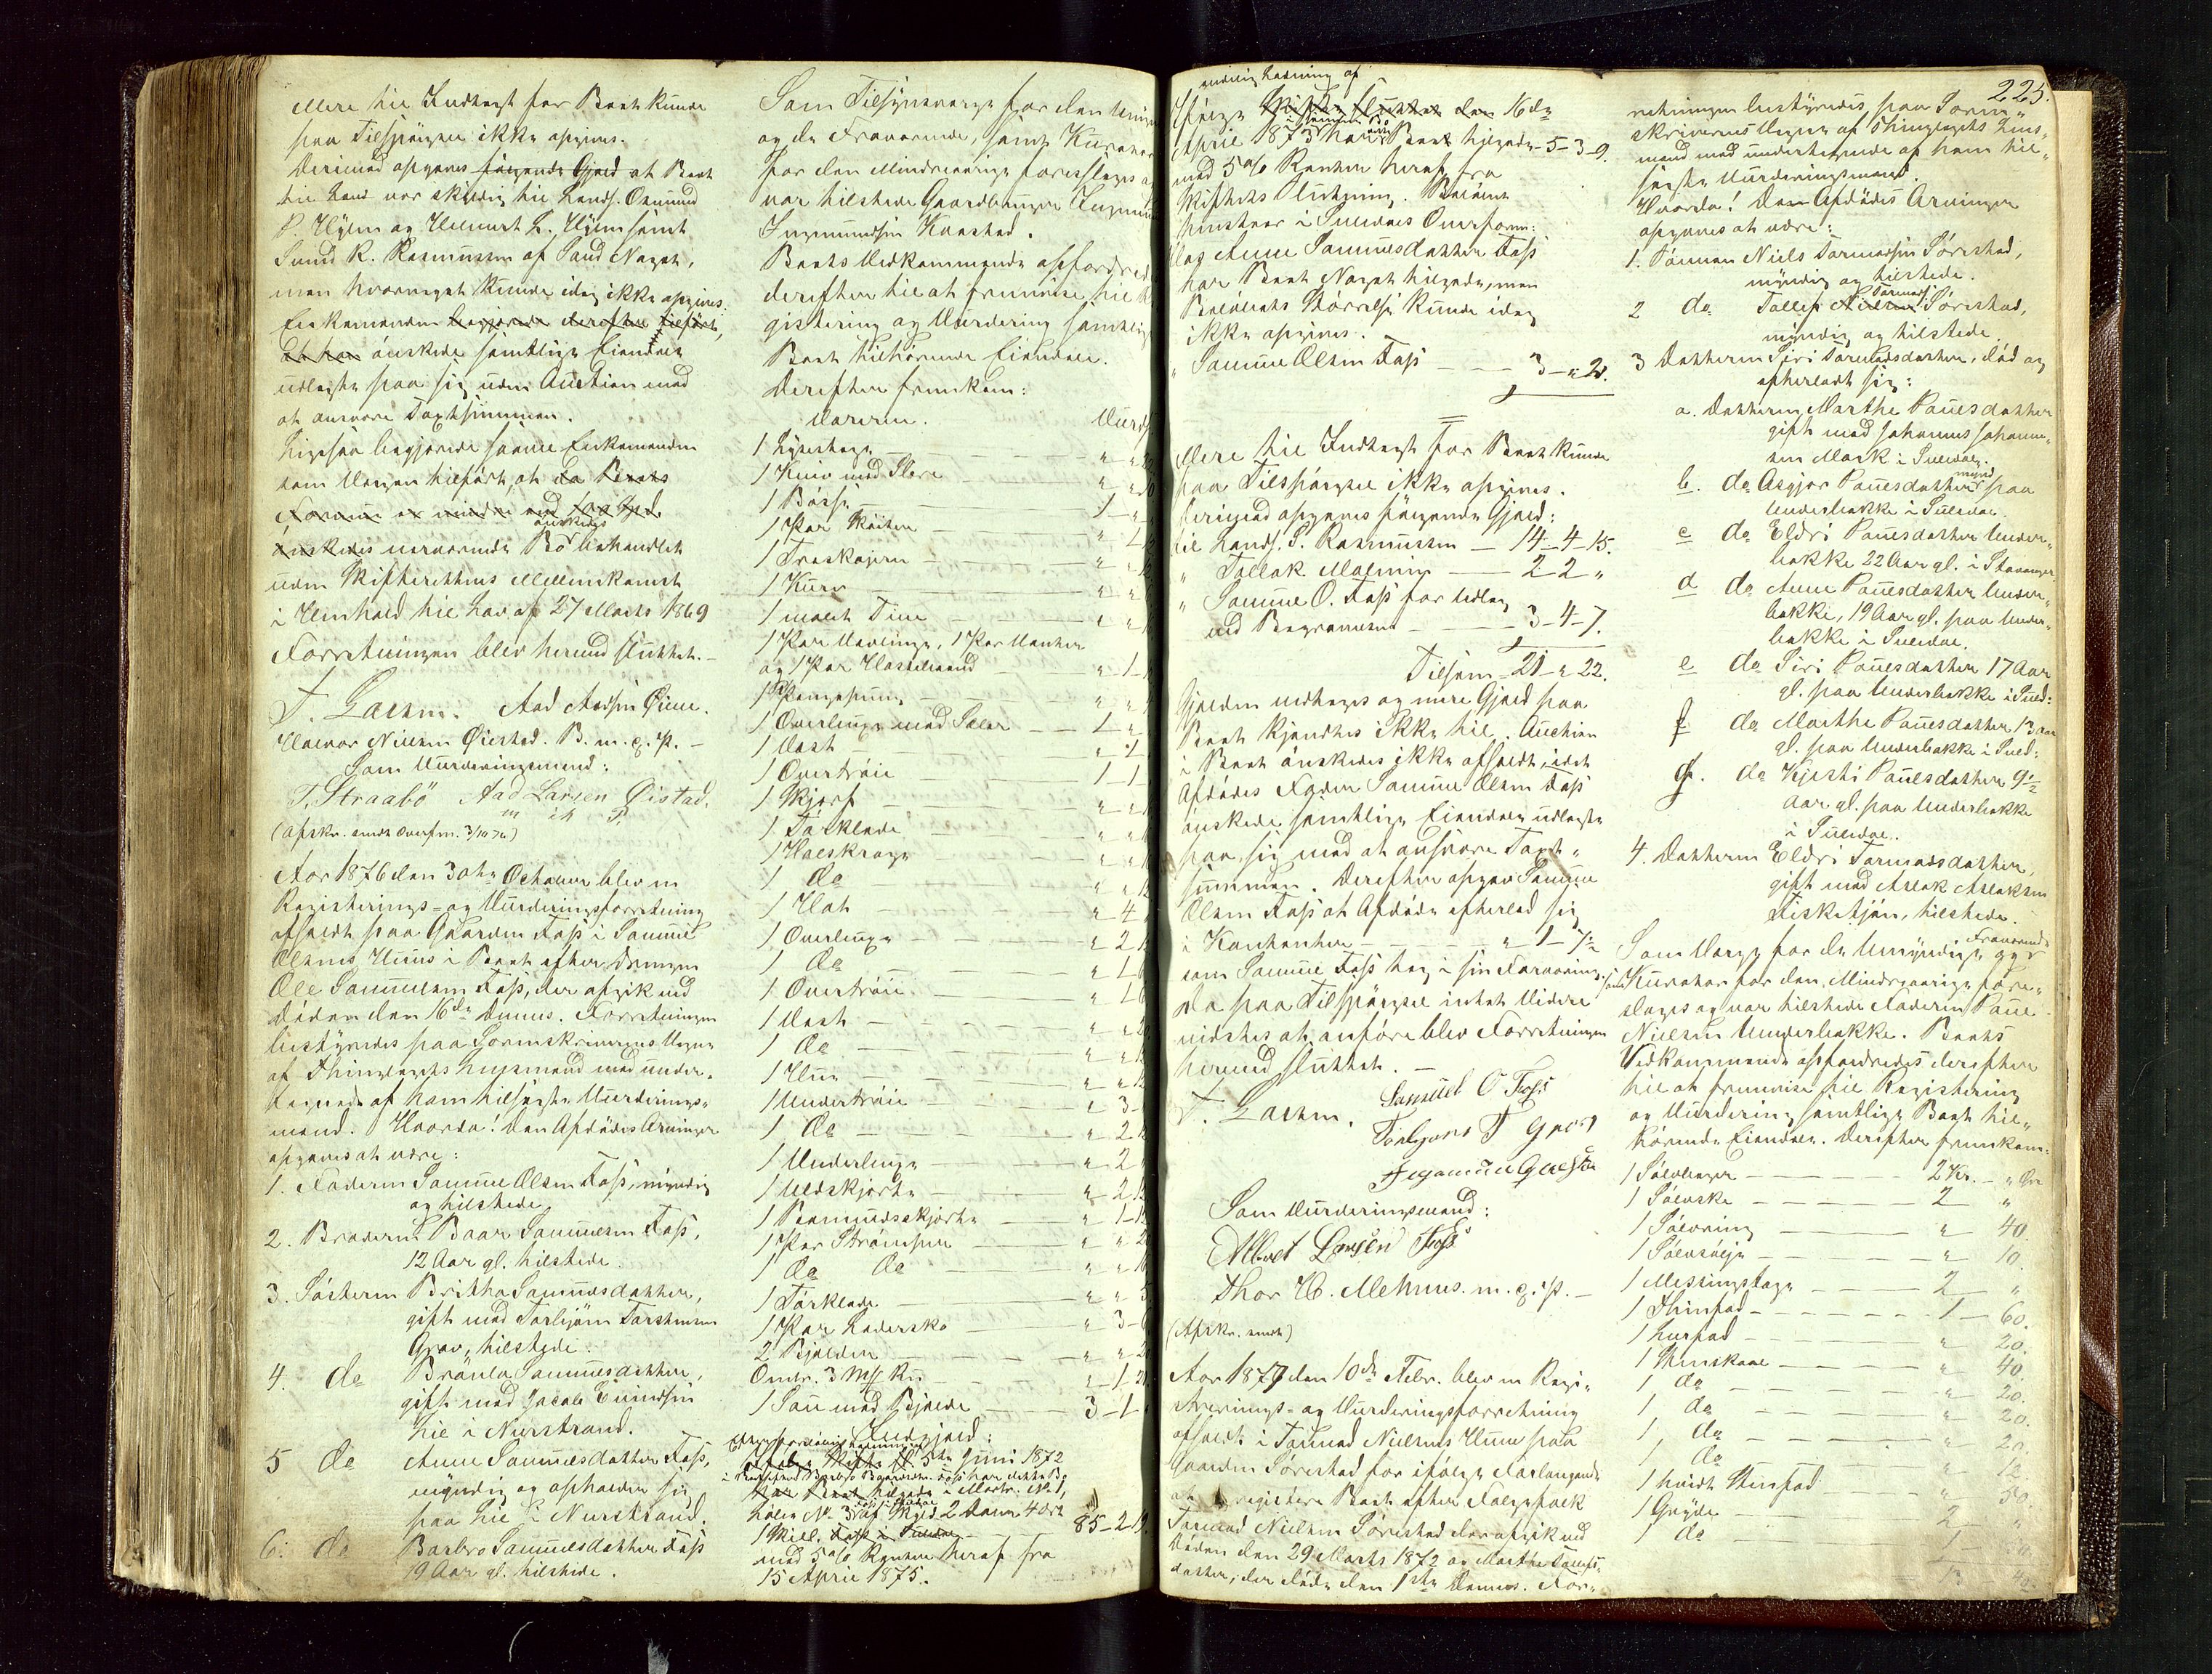 Mere til Indtægt for Boet kunde
paa Tilspørgsel ikke opgives.
Derimod opgaves følgende Gjæld at Boet
var skyldig til Landh. Osmund
P. Hylen og Helmert L. Hylen samt
Svend R. Rasmussen af Sand Noget,
men hvormeget kunde idag ikke opgives.
Enkemanden begjærede derefter tilført,
at han ønskede samtlige Eiendele
udlagte paa sig uden Auction mod
at ansvare Taxtsummen.
Ligesaa begjærede samme Enkemanden
som Værgen tilført, at da Boets
Formue er mindre end
ønskedes nærværende Bo behandlet
uden Skifterettens Mellemkomst
i Henhold til Lov af 27 Marts 1869
Forretningen blev hermed sluttet. —
T. Larsen. Aad Aadsen Øiene.
Halvor Nielsen Øiestad. B. m. p. P. —
Som Vurderingsmænd:
T. Straabö Aad Larsen Öistad.
m i P.
(Afskr. sendt Overfm. 3/10 76)
Aar 1876 den 30te October blev en
Registerings- og Vurderingsforretning
afholdt paa Gaarden Foss i Samuel
Olsens Huus i Boet efter Drengen
Ole Samuelsen Foss, der afgik ved
Døden den 16de Dennes. Forretningen
bestyredes paa Sorenskriverens Vegne
af Thinglagets Lensmand med under-
tegnede af ham tilsagte Vurderings-
mænd. Hvorda! Den Afdødes Arvinger
opgaves at være:
1. Faderen Samuel Olsen Foss, myndig
og tilstede
2. Broderen Baar Samuelsen Foss,
12 Aar gl. tilstede.
3. Søsteren Britha Samuelsdatter,
gift med Torbjørn Torstensen
Grov, tilstede.
4. do Brønla Samuelsdatter,
gift med Jacob Enindsen
Hie i Nærstrand.
5 do Anne Samuelsdatter Foss,
myndig og opholder sig
paa Hie i Nærstrand.
6. do Barbro Samuelsdatter Foss
19 Aar gl. tilstede.
Som Tilsynsværge for den
og de Fraværende, samt Kurator
for den Mindreaarige foresloges og
var tilstede Gaardbruger
Ingemundsen Kaastad.
Boets Vedkommende opfordredes
derefter til at fremvise til
gistering og Vurdering samtlige
Boet tilhørende Eiendele.
Derefter fremkom:
Varerne. Vurd
1 Lysestage — " "
1 Kniv med Slire — " "
1 Bøsse — 1 "
1 Par Skoiter —
1 Træskojern — " "
1 Kurv — " "
1 malet Tine — " "
1 Par Vævlinge, 1 Par Vanter
og 1 Par Hosebaand — " 1
1 Pengepung — " "
1 Overbuxe med Seler — 1 "
1 Vest — " 1
1 Overtrøie — 1 1
1 Skjorf — " "
1 Tørklæde — " "
1 Halskrage — " "
1 do — " "
1 Hat — " 4
1 Overbuxe — " 2
1 do — " 1
1 Overtrøie — " 1
1 Vest — " "
1 do — " "
1 Hue — " "
1 Undertrøie — " 3
1 do — " 2
1 Underbuxe — " 2
1 Uldskjorte — " 2
1 Bomuldsskjorte — " 1
1 Par Strømper — " "
1 do do — " "
1 Tørklæde — " " 5
1 Par Lædersko — " 3
2 Bjælder — " "
Omtr. 3 Mk — " 1
1 Sau med Bjælde — 3 1
Indgjæld:
Juni 1872
har dette Bo
i Martr. No 1,
Løbe No 3 af Skyld 2 Daler 4 Ort
1 Skill. Foss i Suldal — 85-2-19
med 5% Renter heraf fra
15 April 1875.
endelig Ladning af
Ifølge Skifte sluttet den 16de
April 1873 har Boet tilgode 5-3-9.
med 5% Renter heraf fra
Skiftets Slutning. Beløbet
henstaar i Suldals Overform.
Hos Anne Samuelsdatter Foss
har Boet Noget tilgode, men
Beløbets Størrelse kunde idag
ikke opgives.
" Samuel Olsen Foss — 3-"-2.
Mere til Indtægt for Boet kunde
paa Tilspørgsel ikke opgives.
Derimod opgaves følgende Gjæld:
til Landh. S. Rasmussen — 14-4-15.
" Tollak Malening — 2 2 "
" Samuel O. Foss for Udlæg
ved Begravelsen — 3-4-7.
Tilsam. 21 " 22.
Gjælden vedtoges og mere Gjæld paa
Boet kjendtes ikke til. Auction
i Boet ønskedes ikke afholdt, idet
Afdødes Fader Samuel Olsen Foss
ønskede samtlige Eiendele udlagte
paa sig mod at ansvare Taxt-
summen. Derefter opgav Samuel
Olsen Foss at Afdøde efterlod sig
i Kontanter — " 1-7½
som Samuel Foss tog i sin Forvaring.
Da paa Tilspørgsel intet videre
vidstes at anføre blev Forretningen
hermed sluttet. —
T. Larsen. Samuel O Foss
Torbjørn T Grov
Som Vurderingsmænd:
Albret Larsen Foss
Thor H. Mehuus. m. p. P. —
(Afskr. sendt)
Aar 1879 den 10de Febr. blev en Regi-
strerings- og Vurderingsforretning
afholdt i Tormod Nielsens Huus paa
Gaarden Sørestad for ifølge Forlangende
at registere Boet efter Folgefolk
Tormod Nielsen Sørestad der afgik ved
Døden den 29 Marts 1872 og Marthe Tollefs-
datter, der døde den 1ste Dennes. For-
225.
retningen bestyredes paa Soren-
skriverens Vegne af Thinglagets Lens-
mand med undertegnede af ham til-
sagte Vurderingsmænd.
Hvorda! De Afdødes Arvinger
opgaves at være:
1. Sønnen Niels Tormodsen Sørestad,
myndig og tilstede.
2 do Tollef Nielsen Tormods. Sørestad,
myndig og tilstede.
3 Datteren Siri Tormodsdatter, død og
efterladt sig:
a. Datteren Marthe Paulsdatter
gift med Johannes Johanne-
sen Mork i Suledal.
b. do Asgjør Paulsdatter mynd. paa
Underbakke i Suledal.
c do Eldri Paulsdatter Under-
bakke 22 Aar gl. i Stavanger
d do Anne Paulsdatter Under-
bakke, 19 Aar gl. paa Under-
bakke i Suledal.
e do Siri Paulsdatter 17 Aar
gl. paa Underbakke i Suled:
f do Marthe Paulsdatter 13 aar
gl. paa Underbakke i Suled:
g. do Kjersti Paulsdatter 9½
Aar gl. paa Underbakke
i Suledal.
4. Datteren Eldri Tormodsdatter,
gift med Aslak Aslaksen
Fisketjøn, tilstede.
Som Værge for de Umyndige og Fraværende
samt Kurator for den Mindreaarige fore-
sloges og var tilstede Faderen Paul
Nielsen Underbakke. Boets
Vedkommende opfordredes derefter
til at fremvise til Registering
og Vurdering samtlige Boet til-
hørende Eiendele. Derefter fremkom:
1 Sølvbæger — 2 Kr. — " Øre
1 Sølvske — 2 "
1 Sølvring — " 40.
1 Sølvsølje — " 10.
1 Messingstage — 2 "
1 Thinfad — 1 — 60.
1 Leerfad — " 20.
1 Steenskaal — " 40.
1 do — " 20.
1 do — " 20.
1 do — " 20.
1 do — " 12.
1 hvidt Steenfad — " 50.
1 Gryde — 2 "
1 do — 1